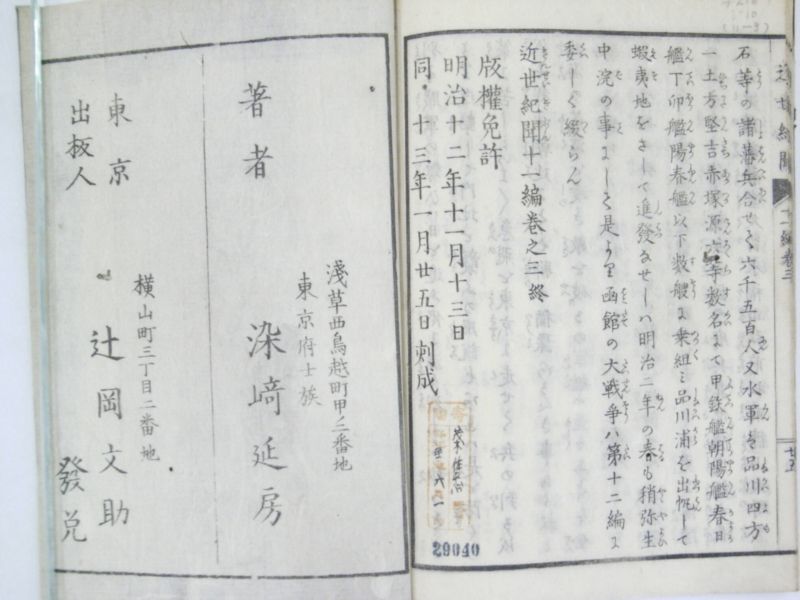 石等の諸藩兵合せて六千五百人又水軍ハ品川四方
一土方堅吉赤塚源六等数名にて甲鉄艦朝陽艦春日
艦丁卯艦陽春艦以下数艘に乗組ミ品川浦を出帆して
蝦夷地をさして進發なせしハ明治二年の春も稍弥生
中浣の事にして是より函館の大戦争ハ第十二編に
委しく綴らん
近世紀聞十一編巻之三終
版權免許
明治十二年十一月十三日
同・十三年一月廿五日刻成
29040
近世紀聞
十一編巻三
廿五
著者
淺草西鳥越町甲二番地
東京府士族
染﨑延房
東京
出板人
横山町三丁目二番地
辻岡文助
發兌